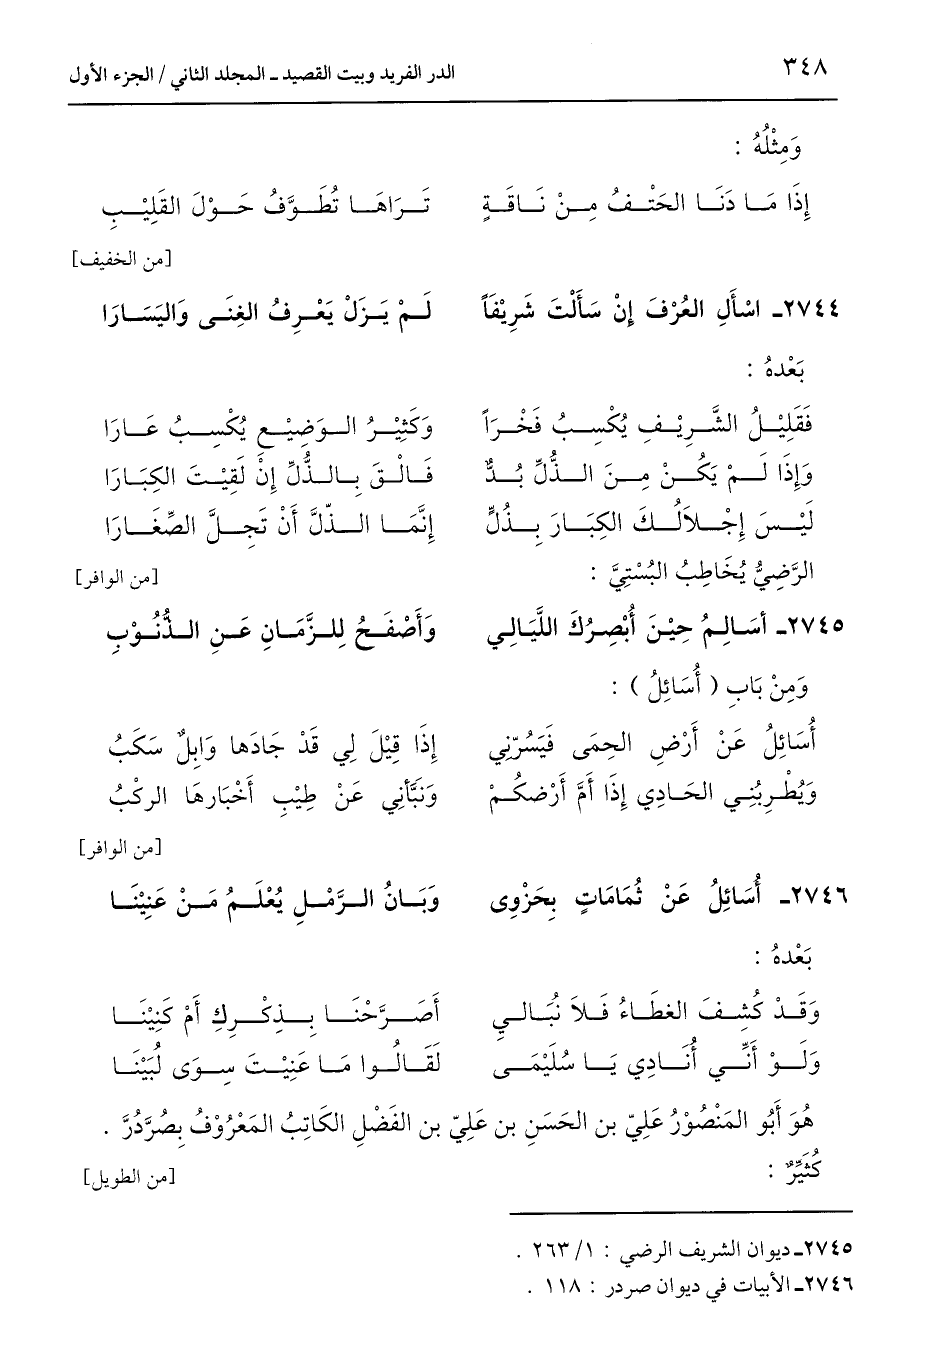 ٣٤٨ الدر الفريد وبيت القصيد ـ المجلد الثاني / الجزء الأول
وَمِثْلُهُ :
إِذَا مَا دَنَا الحَتْفُ مِنْ نَاقَةٍ تَرَاهَا تُطَوَّفُ حَوْلَ القَلِيْبِ
[من الخفيف]
٢٧٤٤ـ اسْأَلِ العُرْفَ إِنْ سَأَلْتَ شَرِيْفَاً لَمْ يَزَلْ يَعْرِفُ الغِنَى وَاليَسَارَا
بَعْدهُ :
فَقَلِيْلُ الشَّرِيْفِ يُكْسِبُ فَخْرَاً وَكَثِيْرُ الوَضِيْعِ يُكْسِبُ عَارَا
وَإِذَا لَمْ يَكُنْ مِنَ الذُّلِّ بُدٌّ فَالْقَ بِالذُّلِّ إِنْ لَقِيْتَ الكِبَارَا
لَيْسَ إِجْلاَلُكَ الكِبَارَ بِذُلٍّ إِنَّمَا الذّلَّ أَنْ تَجِلَّ الصِّغَارَا
الرَّضِيُّ يُخَاطِبُ البُسْتِيَّ : [من الوافر]
٢٧٤٥ـ أسَالِمُ حِيْنَ أُبْصِرُكَ اللَّيَالِي وَأَصْفَحُ لِلزَّمَانِ عَنِ الذُّنُوْبِ
وَمِنْ بَابِ ( أُسَائِلُ ) :
أُسَائِلُ عَنْ أَرْضِ الحِمَى فَيَسُرّنِي إِذَا قِيْلَ لِي قَدْ جَادَهَا وَابِلٌ سَكَبُ
وَيُطْرِبُنِي الحَادِي إِذَا أَمَّ أَرْضكُمْ وَنَبَّأنِي عَنْ طِيْبِ أَخْبَارهَا الركْبُ
[من الوافر]
٢٧٤٦ـ أُسَائِلُ عَنْ ثُمَامَاتٍ بِحَزْوِى وَبَانُ الرَّمْلِ يُعْلَمُ مَنْ عَنِيْنَا
بَعْدهُ :
وَقَدْ كُشِفَ الغطَاءُ فَلاَ نُبَالِي أَصَرَّحْنَا بِذِكْرِكِ أَمْ كَنِيْنَا
وَلَوْ أَنِّي أُنَادِي يَا سُلَيْمَى لَقَالُوا مَا عَنِيْتَ سِوَى لُبَيْنَا
هُوَ أَبُو المَنْصُوْرُ عَلِيّ بن الحَسَنِ بن عَلِيّ بن الفَضْلِ الكَاتِبُ المَعْرُوْفُ بِصُرَّدُرَّ .
كُثيِّرٌ : [من الطويل]
٢٧٤٥ـ ديوان الشريف الرضي : ١/ ٢٦٣ .
٢٧٤٦ـ الأبيات في ديوان صردر : ١١٨ .